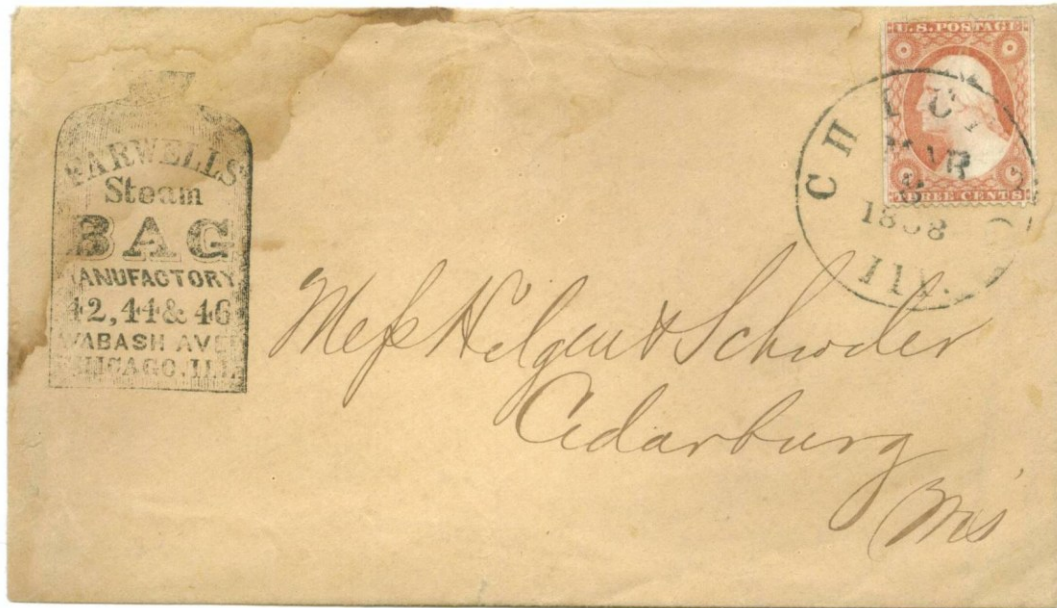 FARWELLS'
Steam
BAG
MANUFACTORY
42, 44 & 46
WABASH AVE
CHICAGO. ILL.
U.S. POSTAGE
THREE CENTS
CHICAGO
MAR
ILL.
Mess Hilgen & Schroder
Cedarburg
Wis